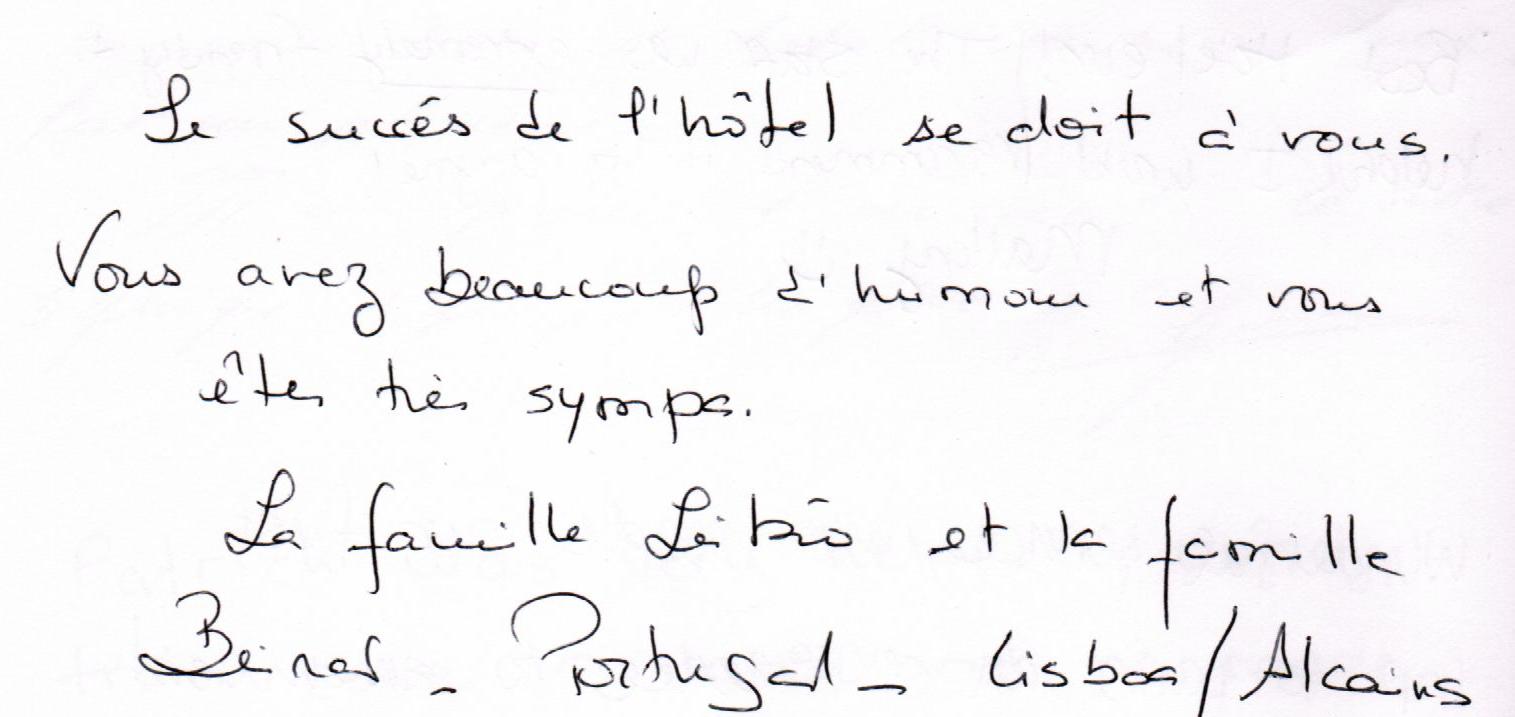 Le succés de l'hôtel se doit à vous.
Vous avez beaucoup d'humour et vous
êtes très sympa.
La famille Leitão et la famille
Portugal - Lisboa / Alcains